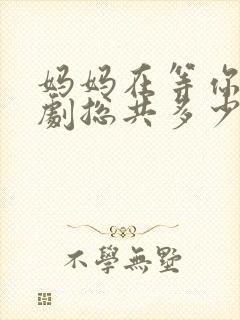 妈妈在等你
劇总共多少
不學無墅